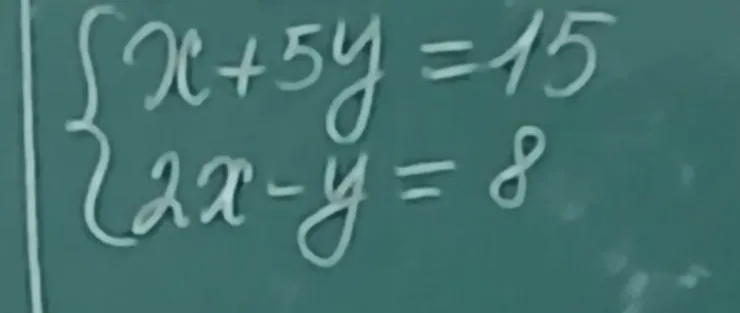 x+5y=15
2x-y=8